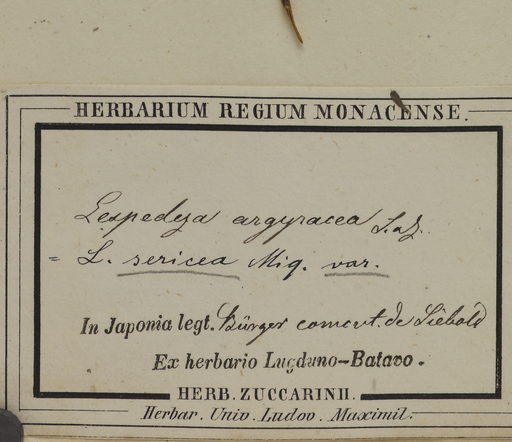 HERBARIUM REGIUM MONACENSE.
Lespedeza argyracea S. a Z.
= L. sericea Miq. var.
In Japonia legt. Bürger comvt. de Siebold
Ex herbario Lugduno-Batavo.
HERB. ZUCCARINII.
Herbar. Univ. Ludov. Maximil.